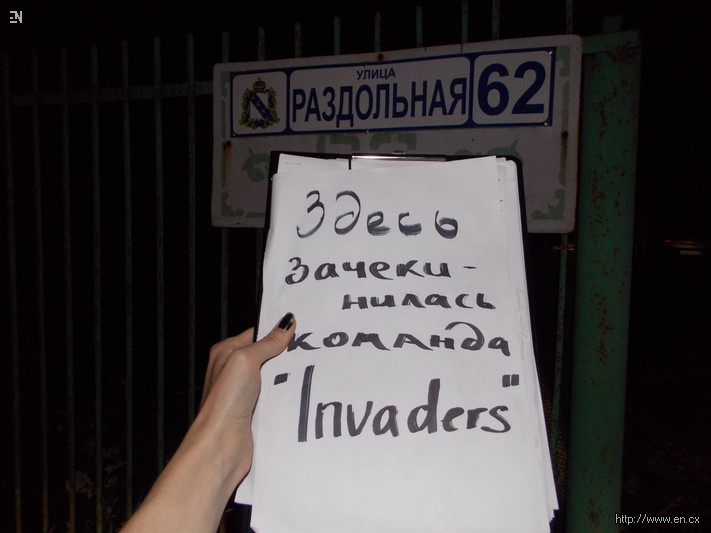 EN
УЛИЦА
РАЗДОЛЬНАЯ 62
Здесь
зачеки-
нилась
команда
"Invaders"
http://www.en.cx